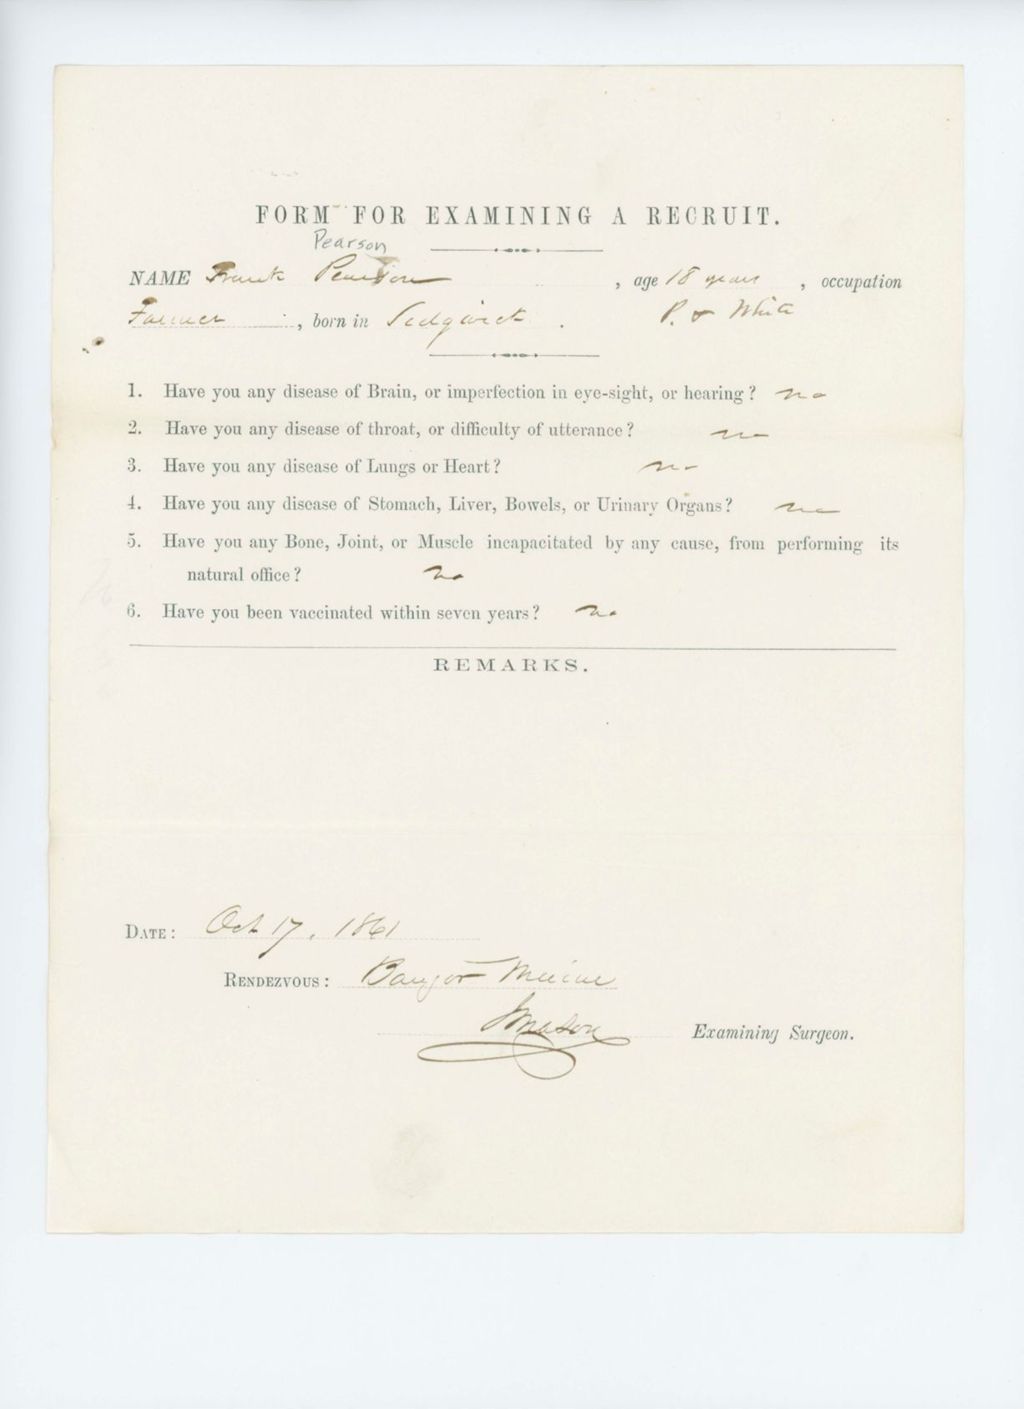 FORM FOR EXAMINING A RECRUIT.
Pearson
NAME Frank Pearson , age 18 years , occupation
Farmer , born in Sedgwick . P. & White
1. Have you any disease of Brain, or imperfection in eye-sight, or hearing? no
2. Have you any disease of throat, or difficulty of utterance? no
3. Have you any disease of Lungs or Heart? no
4. Have you any disease of Stomach, Liver, Bowels, or Urinary Organs? no
5. Have you any Bone, Joint, or Muscle incapacitated by any cause, from performing its
natural office? no
6. Have you been vaccinated within seven years? no
REMARKS.
DATE: Oct 17, 1861
RENDEZVOUS: Bangor Maine
Mason Examining Surgeon.